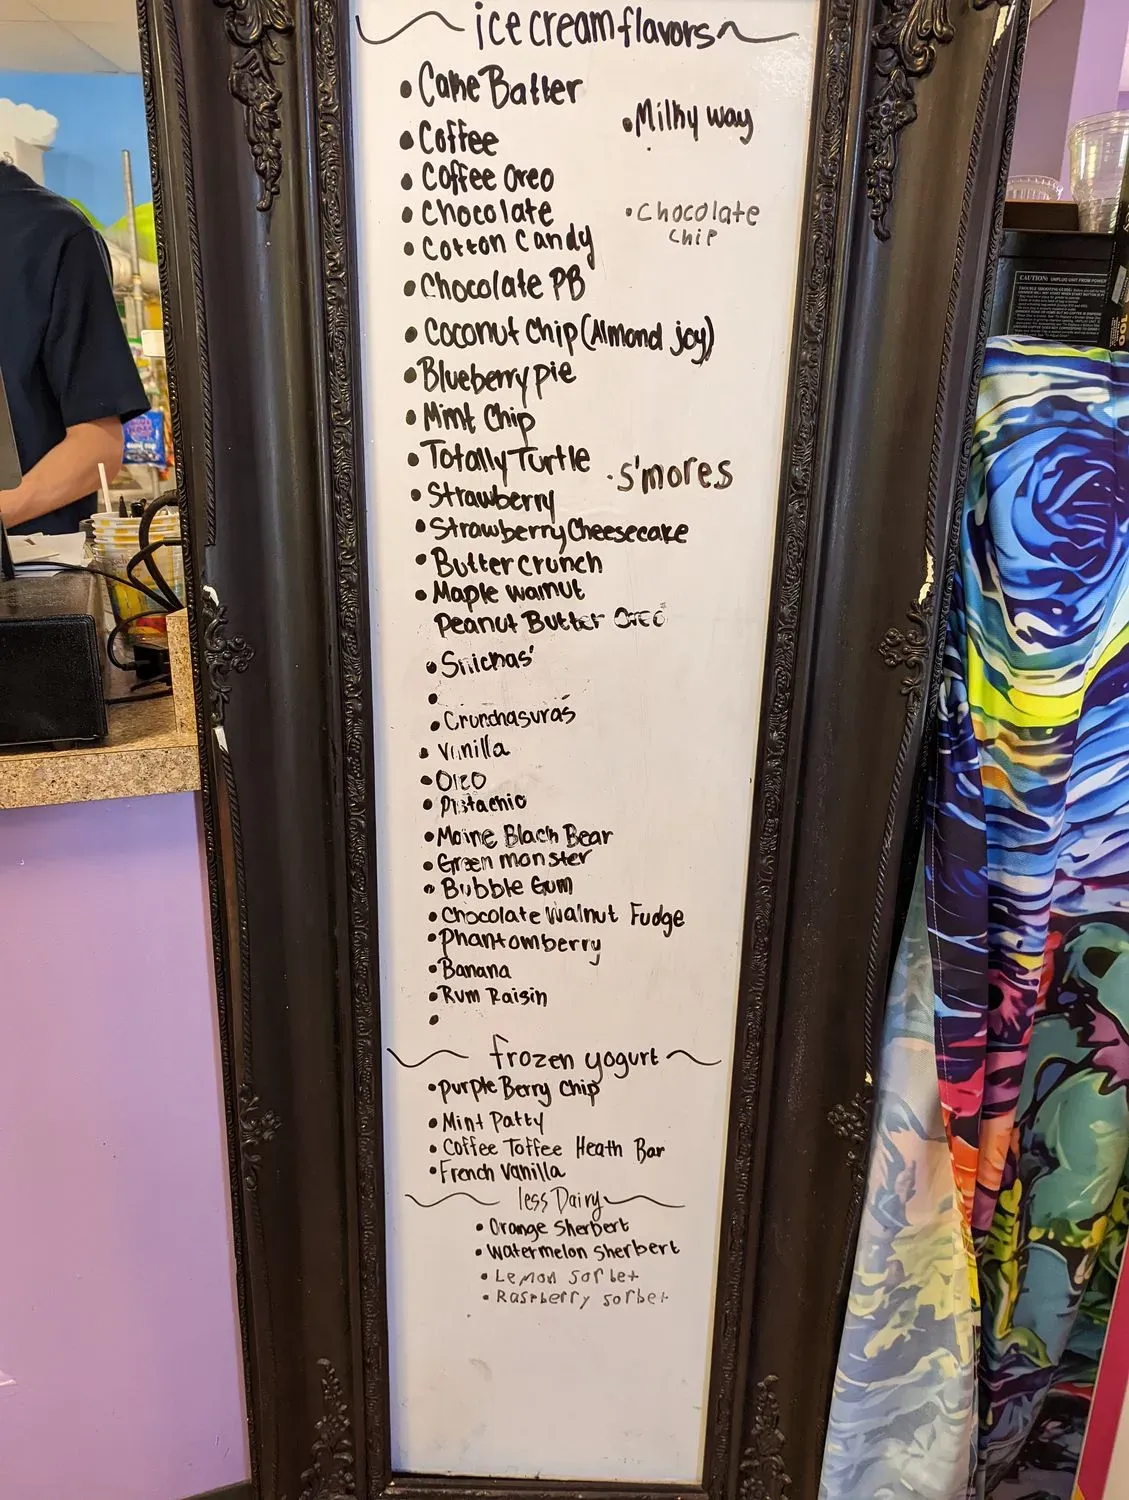 ice cream flavors
• Cake Batter
• Milky way
• Coffee
• Coffee Oreo
• Chocolate
• Chocolate
chip
• Cotton Candy
• Chocolate PB
• Coconut Chip (Almond joy)
• Blueberry pie
• Mint Chip
• Totally Turtle
• s'mores
• Strawberry
• Strawberry Cheesecake
• Butter crunch
• Maple walnut
Peanut Butter Oreo
• Snickas'
•
• Crunchasaurus
• Vanilla
• Oreo
• Pistachio
• Maine Black Bear
• Green monster
• Bubble Gum
• Chocolate Walnut Fudge
• Phantomberry
• Banana
• Rum Raisin
•
frozen yogurt
• Purple Berry Chip
• Mint Patty
• Coffee Toffee Heath Bar
• French Vanilla
less Dairy
• Orange Sherbert
• Watermelon Sherbert
• Lemon sorbet
• Raspberry sorbet
CAUTION: UNPLUG UNIT FROM POWER